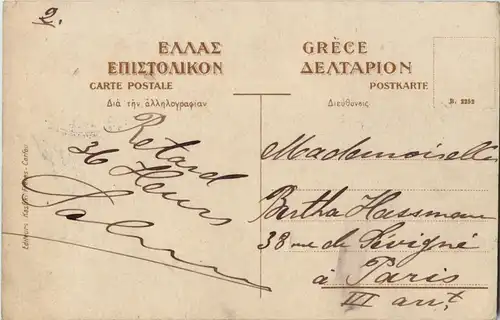 2.
ΕΛΛΑΣ
ΕΠΙΣΤΟΛΙΚΟΝ
CARTE POSTALE
Διὰ τὴν ἀλληλογραφίαν
GRÈCE
ΔΕΛΤΑΡΙΟΝ
POSTKARTE
Διεύθυνσις
B. 2252
Retard
36 Heures
Mademoiselle
Bertha Hassman
38 rue de Sévigné
à Paris
III arrt
Editeurs